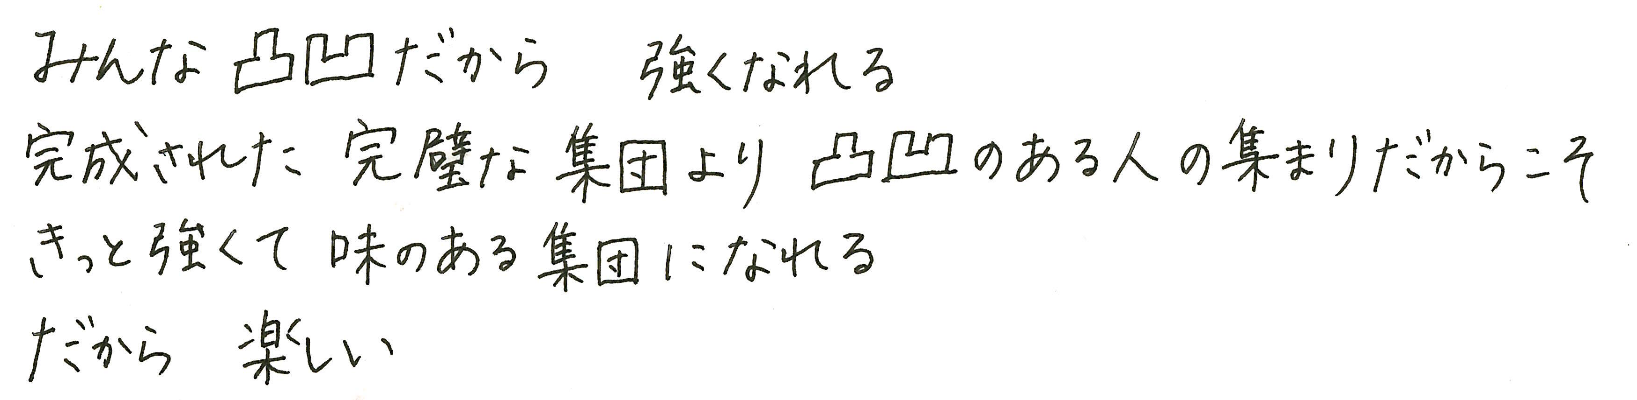 みんな凸凹だから 強くなれる
完成された 完璧な集団より 凸凹のある人の集まりだからこそ
きっと強くて 味のある集団になれる
だから 楽しい